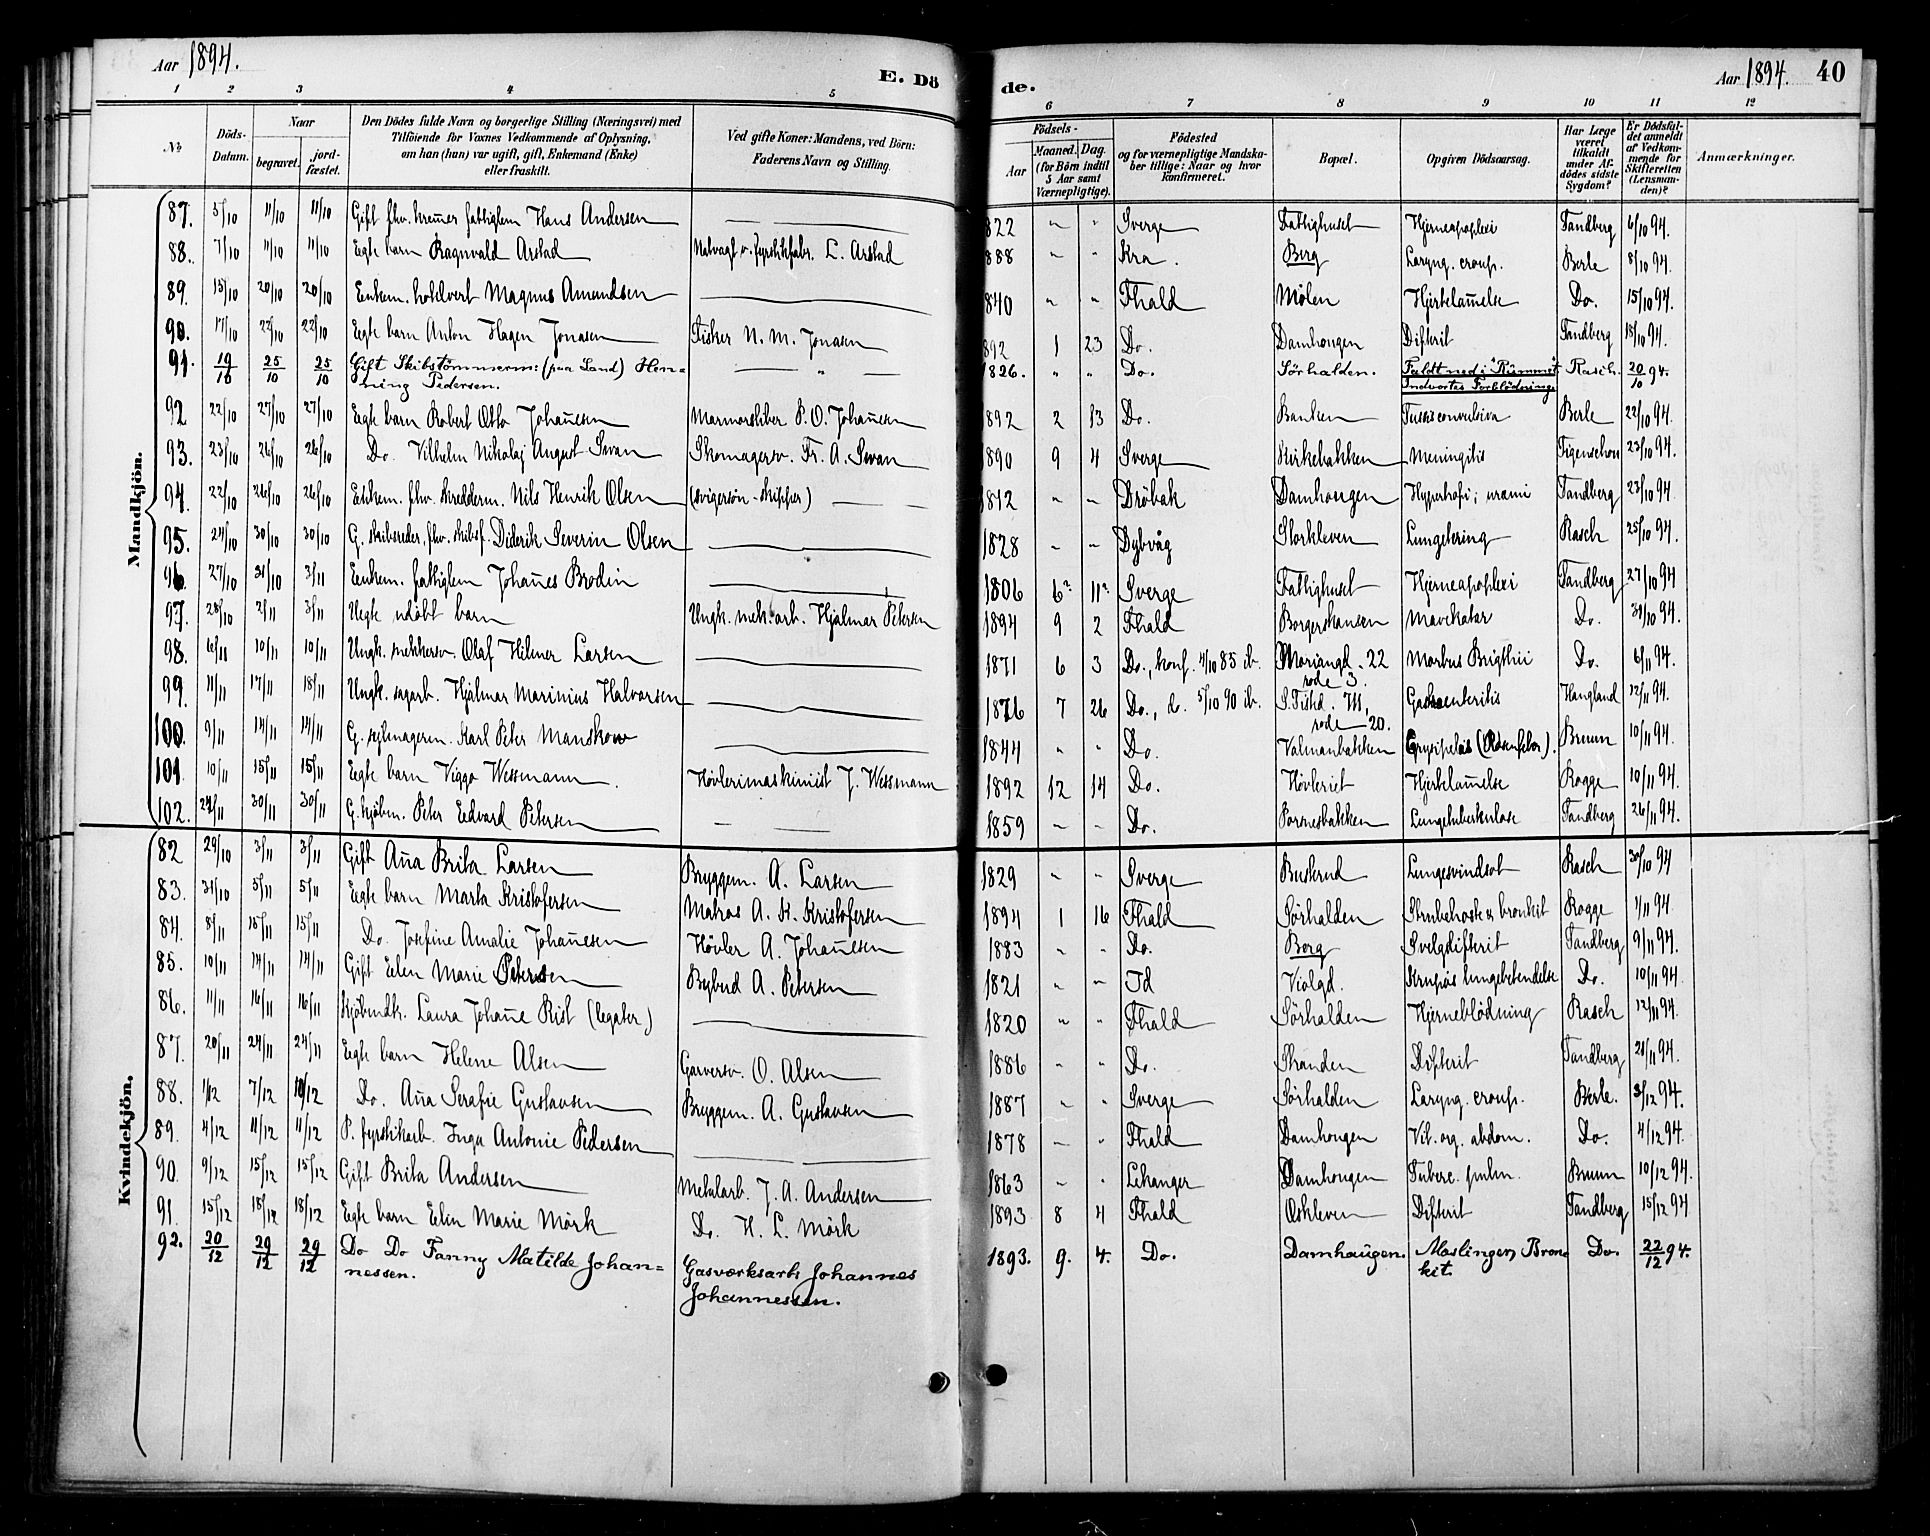 Aar 1894.
E. Dö
de.
Aar 1894. 40
1 2 3 4 5 6 7 8 9 10 11 12
No
Döds-
Datum.
Naar
begravet.
jord-
fæstet.
Den Dödes fulde Navn og borgerlige Stilling (Næringsvei) med
Tilföiende for Voxnes Vedkommende af Oplysning,
om han (hun) var ugift, gift, Enkemand (Enke)
eller fraskilt.
Ved gifte Koner: Mandens, ved Börn:
Faderens Navn og Stilling.
Födsels-
Aar
Maaned. Dag.
(for Börn indtil
5 Aar samt
Værnepligtige).
Födested
og for værnepligtige Mandska-
ber tillige: Naar og hvor
konfirmeret.
Bopæl.
Opgiven Dödsaarsag.
Har Læge
været
tilkaldt
under Af-
dödes sidste
Sygdom?
Er Dödsfal-
det anmeldt
af Vedkom-
mende for
Skifteretten
(Lensman-
den)?
Anmærkninger.
Mandkjön.
87. 5/10 11/10 11/10 Gift fhv. kremer fattiglem Hans Andersen — 822 " " Sverge Fattighuset Hjerneapoplexi Tandberg 6/10 94.
88. 7/10 11/10 11/10 Egte barn Ragnvald Arstad Natvagt v. fyrstikfabr. L. Arstad 888 " " Kra. Berg Laryng. croup. Berle 8/10 94.
89. 15/10 20/10 20/10 Enkem. hotelvert Magnus Amundsen — 840 " " Fhald Mölen Hjertelam̄else Do. 15/10 94.
90. 17/10 22/10 22/10 Egte barn Anton Hagen Jonasen Fisker N. M. Jonasen 892 1 23 Do. Damhougen Difterit Tandberg 18/10 94.
91. 19/10 25/10 25/10 Gift Skibstömmerm: (paa Land) Hen-
ning Pedersen. — " — 1826. " " Do. Sörhalden. Faldt ned i Rummet
Indvortes Forblödning. Rasch. 20/10 94.
92 22/10 27/10 27/10 Egte barn Robert Otto Johan̄esen Marmorsliber P. O. Johan̄esen 1892 2 13 Do. Banken Tussis convulsiva Berle 22/10 94.
93. 23/10 26/10 26/10 Do. Vilhelm Nikolaj August Svan Skomagersv. Fr. A. Svan 1890 9 4 Sverge Kirkebakken Meningitis Figenschou 23/10 94.
94. 22/10 26/10 26/10 Enkem. fhv. skrædderm. Nils Henrik Olsen (svigersön - skipper) — 1812 " " Dröbak Damhougen Hypertrofi; urämi Tandberg 23/10 94.
95. 24/10 30/10 30/10 G. skibsreder, fhv. skibsf. Diderik Severin Olsen — 1828 " " Dybvåg Storkleven Lungetæring Rasch 25/10 94.
96. 27/10 31/10 3/11 Enkem. fattiglem Johan̄es Brodin — 1806 6? 11? Sverge Fattighuset Hjerneapoplexi Tandberg 27/10 94
97. 28/10 2/11 3/11 Uegte udöbt barn Ungk. mek. arb. Hjalmar Petersen 1894 9 2 Fhald Borgerskansen Mavekatar Do. 31/10 94.
98. 6/11 10/11 10/11 Ungk. snekkersv. Olaf Hilmer Larsen — 1871 6 3 Do., konf. 4/10 85 ib. Moriangd. 22
rode 3. Morbus Brigthii Do. 6/11 94.
99. 11/11 17/11 18/11 Ungk. sagarb. Hjalmar Marinius Halvorsen — 1876 7 26 Do., do. 5/10 90 ib. S. Fiskd.
rode 20. Gastroenteritis Haugland 12/11 94.
100. 9/11 14/11 14/11 G. sejlmagerm. Karl Peter Manskow — 1844 " " Do. Valmanbakken Erysipelas (Rosenfeber). Bruun 10/11 94.
101. 10/11 15/11 15/11 Egte barn Viggo Wessmann. Hövlerimaskinist J. Wessmann 1892 12 14 Do. Hövleriet Hjertelam̄else Rogge 10/11 94.
102. 24/11 30/11 30/11 G. kjöbm. Peter Edvard Petersen — 1859 " " Do. Porsnesbakken Lungetuberkulose Tandberg 26/11 94.
Kvindekjön.
82 29/10 3/11 3/11 Gift An̄a Brita Larsen Bryggem. A. Larsen 1829 " " Sverge Buskrud Lungesvindsot Rasch 30/10 94
83. 31/10 5/11 5/11 Egte barn Marta Kristofersen Matros A. K. Kristofersen 1894 1 16 Fhald Sörhalden Strubehoste & bronkit Rogge 1/11 94.
84. 8/11 15/11 15/11 Do. Josefine Amalie Johan̄esen Hövler A. Johan̄esen 1883 " " Do. Berg Svelgdifterit Tandberg 9/11 94.
85. 10/11 14/11 14/11 Gift Elen Marie Petersen Bybud A. Petersen 1821 " " Id Violgd. Krupøs lungebetendelse Do. 10/11 94.
86. 11/11 16/11 16/11 Kjöbmdk. Laura Johan̄e Rist (legater) — 1820 " " Fhald Sörhalden Hjerneblödning Rasch 12/11 94.
87. 20/11 24/11 24/11 Egte barn Helene Alsen Garversv. O. Alsen 1886 " " Do. Stranden Difterit Tandberg 21/11 94.
88. 1/12 7/12 10/12 Do. An̄a Serafie Gustavsen Bryggem. A. Gustavsen 1887 " " Sverge Sörhalden Laryng. croup. Berle. 3/12 94.
89. 4/12 11/12 11/12 P. fyrstikarb. Inga Antonie Pedersen — 1878 — " Fhald Damhougen Vit. org. abdom. Do. 4/12 94.
90 9/12 15/12 15/12 Gift Brita Andersen Metalarb. J. A. Andersen 1863 " " Lekanger Damhougen Tuberc. pulm. Bruun 10/12 94.
91. 15/12 18/12 18/12 Egte barn Elin Marie Mörk Do. H. L. Mörk 1893 8 4 Fhald Oskleven Difterit Tandberg 15/12 94
92. 20/12 29/12 29/12 Do Do Fanny Matilde Johan=
nessen. Gasværksarb. Johannes
Johannessen. 1893. 9. 4. Do. Damhaugen. Meslinger, Bron-
kit. Do. 22/12 94.